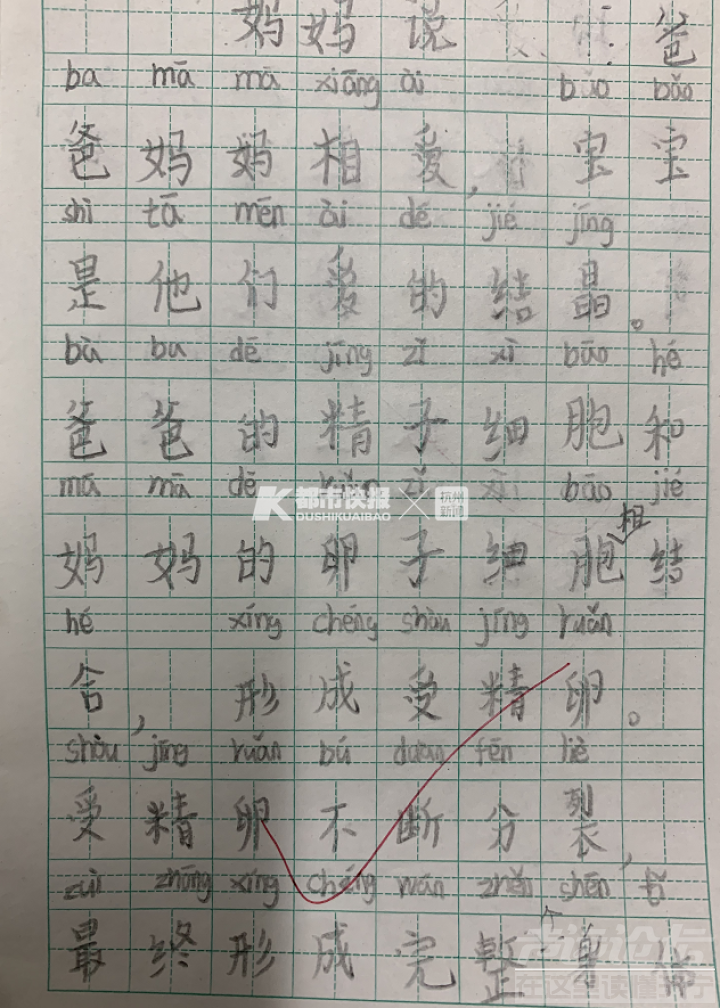 妈妈说 爸
ba mā mā xiāng ài bǎo bǎo
爸妈妈相爱，宝宝
shì tā mēn ài dé jié jīng
是他们爱的结晶。
bà ba dē jīng zǐ xì bāo hé
爸爸的精子细胞和
mā mā dē zǐ xì bāo jié
K都市快报 DUSHIKUAIBAO × 杭州新闻
相
妈妈的卵子细胞结
hé xíng chéng shòu jīng ruǎn
合，形成受精卵。
shòu jīng ruǎn bú duàn fēn liè
受精卵不断分裂，
zuì zhōng xíng chéng wán zhěn shēn
最终形成完整